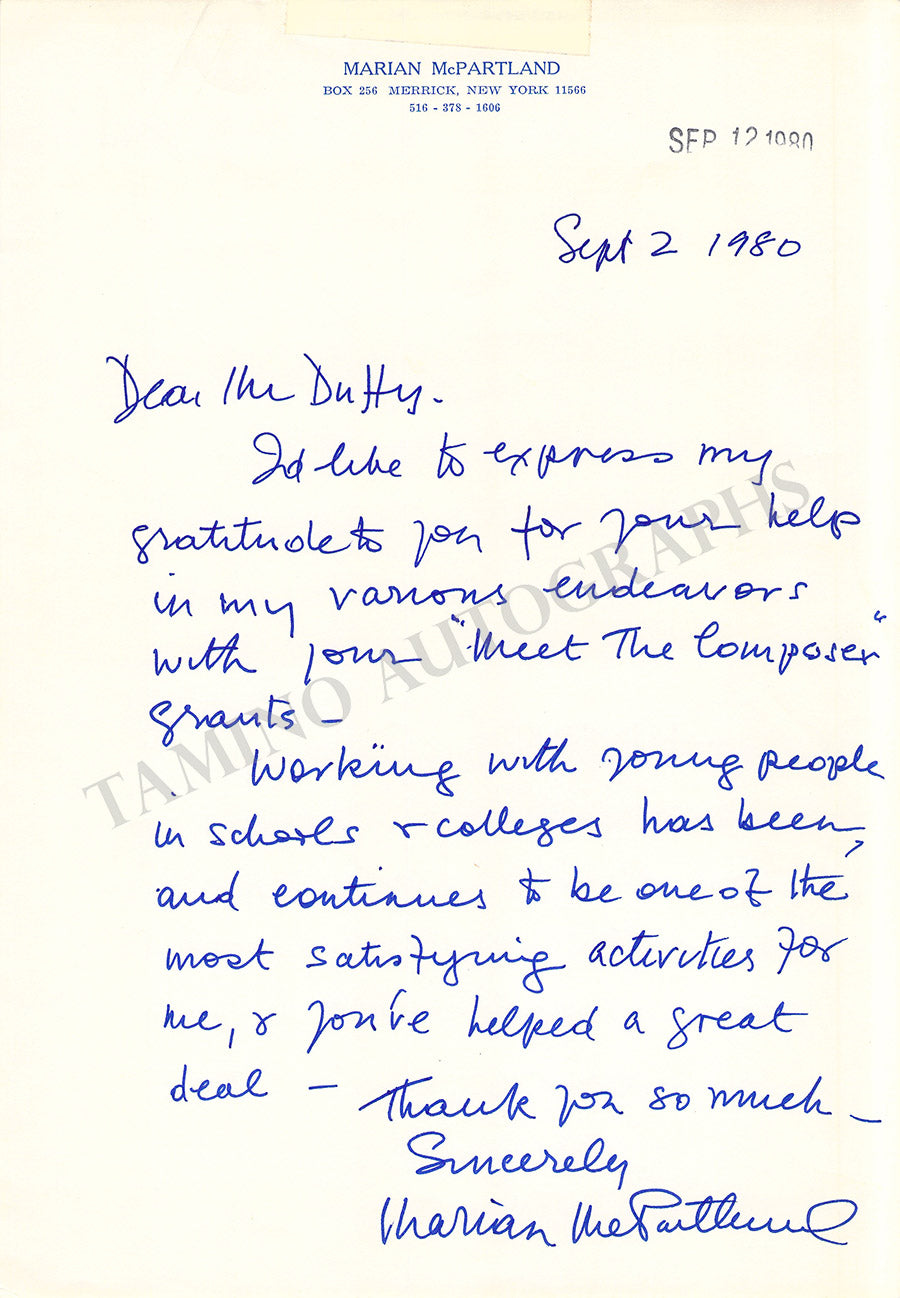 MARIAN McPARTLAND
BOX 256 MERRICK, NEW YORK 11566
516 - 378 - 1606
SEP 12 1980
Sept 2 1980
Dear Mr Duffy.
I'd like to express my
gratitude to you for your help
in my various endeavors
with your "Meet The Composer"
grants –
Working with young people
in schools & colleges has been,
and continues to be one of the
most satisfying activities for
me, & you've helped a great
deal –
Thank you so much –
Sincerely
Marian McPartland
TAMINO AUTOGRAPHS